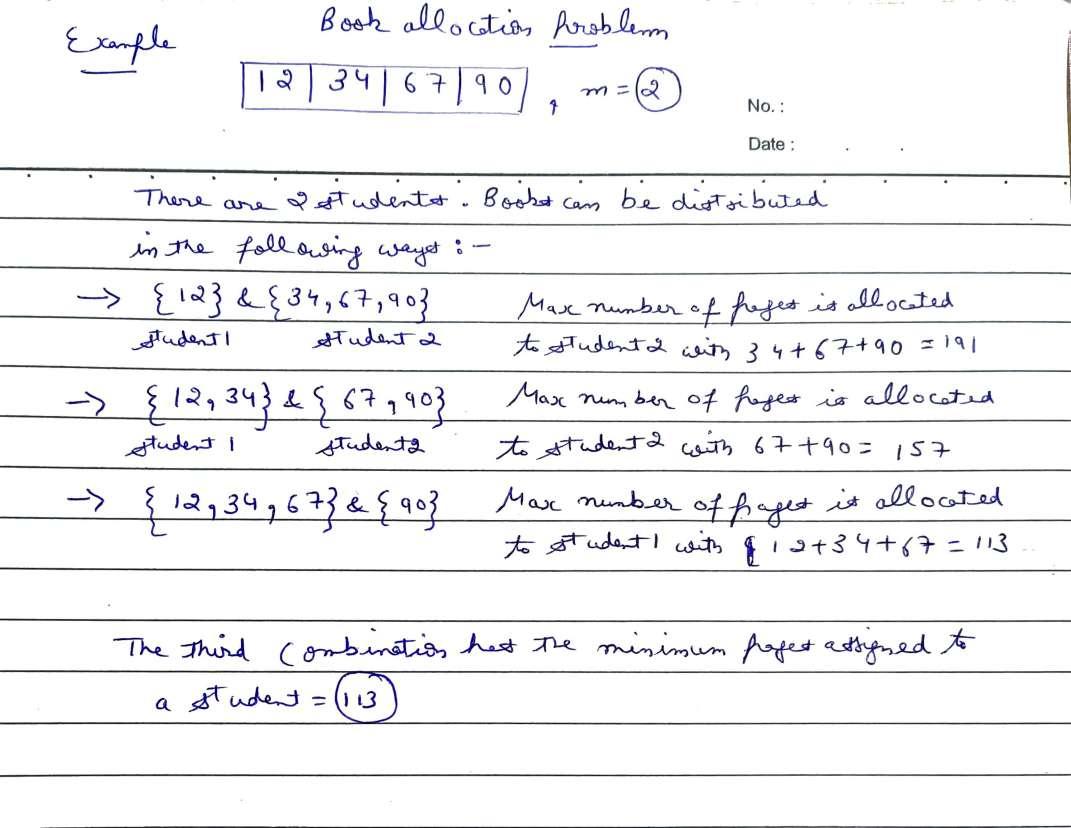 Example
Book allocation Problem
12 | 34 | 67 | 90 , m = 2
No. :
Date :
There are 2 students. Books can be distributed
in the following ways :-
→ {12} & {34,67,90} Max number of pages is allocated
student 1 student 2 to student 2 with 34+67+90 = 191
→ {12, 34} & {67, 90} Max number of pages is allocated
student 1 student 2 to student 2 with 67+90 = 157
→ {12, 34, 67} & {90} Max number of pages is allocated
to student 1 with 12+34+67 = 113
The third Combination has the minimum pages assigned to
a student = 113